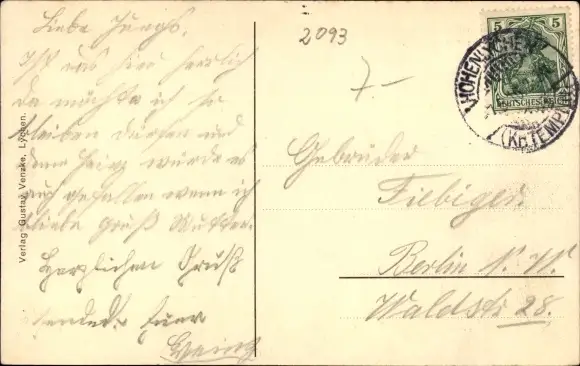 Liebe Jungs,
Ist das hier herrlich
da möchte ich so
bleiben dürfen und
dem Heinz würde es
auch gefallen wenn ich
bliebe Gruß Mutter.
Herzlichen Gruß
sendet Euer
Heinz
Verlag Gustav Venzke, Lychen.
2093
7.-
5 5
HOHENLYCHEN
DEUTSCHES REICH
(KR. TEMPLIN)
Gebrüder
Fiebiger
Berlin N. W.
Waldstr 28.